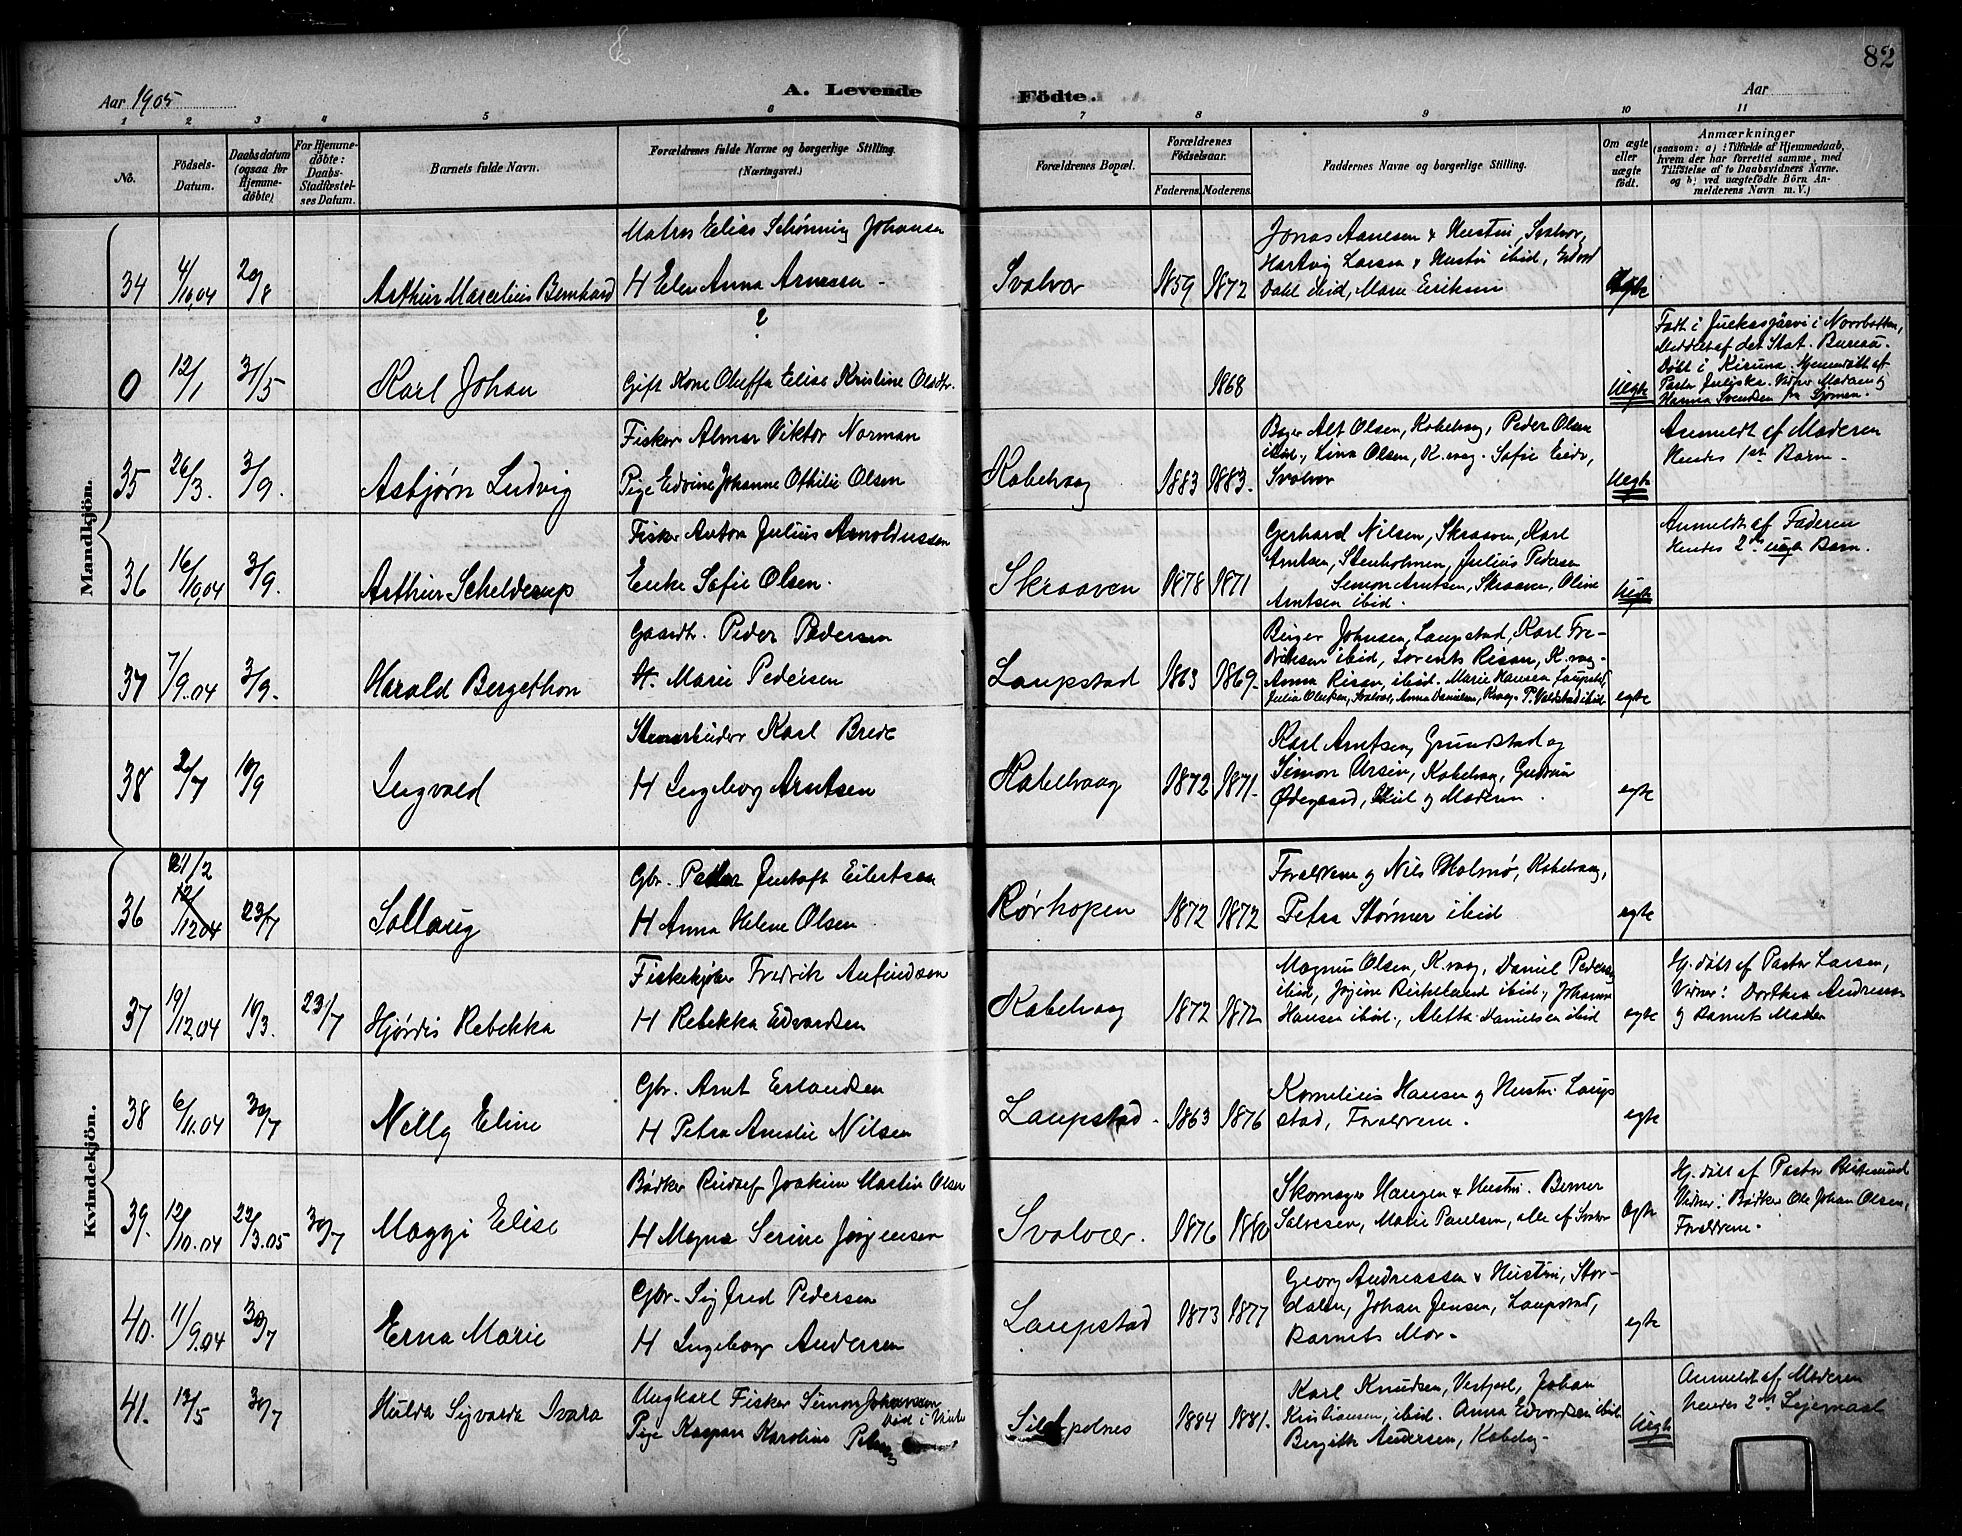 82
Aar 1905
A. Levende
Födte.
Aar
1 2 3 4 5 6 7 8 9 10 11
No.
Födsels-
Datum.
Daabsdatum
(ogsaa for
Hjemme-
döbte)
For Hjemme-
döbte:
Daabs-
Stadfæstel-
ses Datum.
Barnets fulde Navn.
Forældrenes fulde Navne og borgerlige Stilling.
(Næringsvei.)
Forældrenes Bopæl.
Forældrenes
Födselsaar.
Faderens.
Moderens.
Faddernes Navne og borgerlige Stilling.
Om ægte
eller
uægte
födt.
Anmærkninger
(saasom: a) i Tilfælde af Hjemmedaab,
hvem der har forrettet samme, med
Tilföielse af to Daabsvidners Navne,
og b) ved uægtefödte Börn An-
melderens Navn m. V.)
Mandkjön.
34 4/10,04 20/8 Arthur Marcelius Bernhard
Matros Elias Schønning Johansen
H Elen Anna Arnesen
Svolvær 1859 1872
Jonas Aanesen & Hustru, Svolvær,
Hartvig Larsen & Hustru ibid, Edvard
Dahl ibid, Marie Eriksen
ægte
0 12/1 31/5 Karl Johan
?
Gift Kone Oluffa Elise Kristine Olsdtr.
1868
Uegte
Født i Jukkasjärvi i Norrbotten,
Meddelt af det Stat. Bureau.
Døbt i Kiruna. Hjemmedøbt af
Hanna Svendsen fra
35 26/3. 3/9. Asbjørn Ludvig
Fisker Almar Viktor Norman
Pige Edvine Johanne Othilie Olsen
Kabelvaag 1883 1883.
Bager Alf Olsen, Kabelvaag, Peder Olsen
ibid., Lina Olsen, K.vaag. Sofie Eide,
Svolvær
Uegte
Anmeldt af Moderen
Hendes 1ste Barn.
36 16/10,04 3/9. Arthur Schelderup
Fisker Anton Julius Arnoldussen
Enke Sofie Olsen.
Skraaven 1878 1871
Gerhard Nilsen, Skraaven, Karl
Arntsen, Stenholmen, Julius Pedersen
Simon Arntsen, Skraaven, Oline
Arntsen ibid.
Uegte
Anmeldt af Faderen
Hendes 2det uegte Barn.
37 7/9.04 3/9. Harald Bergethon
Gaardbr. Peder Pedersen
H. Marie Pedersen
Laupstad 1863 1869.
Birger Johnsen, Laupstad, Karl Fre-
driksen ibid, Lorents Risan, K.vaag.
Anna Risan, ibid. Marie Hansen Laupstad
Julia Olufsen, Svolvær, Anna Danielsen, Kvaag. P. Voldstad ibid
egte
38 2/7 10/9 Ingvald
Stenarbeider Karl Brede
H Ingeborg Arntsen
Kabelvaag 1872 1871.
Karl Arntsen, Grundstad og
Simon Ursin, Kabelvaag, Gudrun
Ødegaard, ibid og Moderen.
egte
Kvindekjön.
36 21/2 12/12 04 23/7 Sollaug
Gbr. Peder Gustaft Eilertsen
H Anna Helene Olsen
Rørhopen 1872 1872
Forældrene og Nils Holmø, Kabelvaag,
Petra Størmer ibid
egte
37 19/12.04 10/3. 23/7 Hjørdis Rebekka
Fiskekjøber Fredrik Anfindsen
H Rebekka Edvardsen
Kabelvaag 1872 1872
Magnus Olsen, K.vaag, Daniel Pedersen
ibid, Jørgine Birkeland ibid., Johanne
Hansen ibid., Aletta Danielsen ibid
egte
Hj. døbt af Pastor Larsen,
Vidner: Dorthea Andresen
og Barnets Moder
38 6/11.04 30/7 Nelly Eline
Gbr. Arnt Erlandsen
H Petra Amalie Nilsen
Laupstad. 1863 1876
Kornelius Hansen og Hustru Laup
stad, Forældrene.
egte
39. 12/10.04 22/3.05 30/7 Maggi Elise
Bødker Rudolf Joakim Martin Olsen
H Magna Serine Jørgensen
Svolvær. 1876 1880
Skomager Haugen & Hustru. Berner
Salvesen, Marie Paulsen, alle af Svolvær
egte
Hj. døbt af Pastor
Vidner: Bødker Ole Johan Olsen,
Forældrene.
40. 11/9.04 30/7 Erna Marie
Gbr. Sigfred Pedersen
H Ingeborg Andersen
Laupstad 1873 1877
Georg Andreassen & Hustru, Stor-
dalen, Johan Jensen, Laupstad,
Barnets Mor.
egte
41. 13/5 30/7 Hulda Sigvarda Ivara
Ungkarl Fisker Simon Johansen
Pige Kaspara Karoline
1884 1881.
Karl Knudsen, Johan
Kristiansen, ibid. Anna Edvardsen ibid
Bergitte Andersen, Kabelvg.
Uegte
Anmeldt af Moderen
Hendes 2det Leiermaal